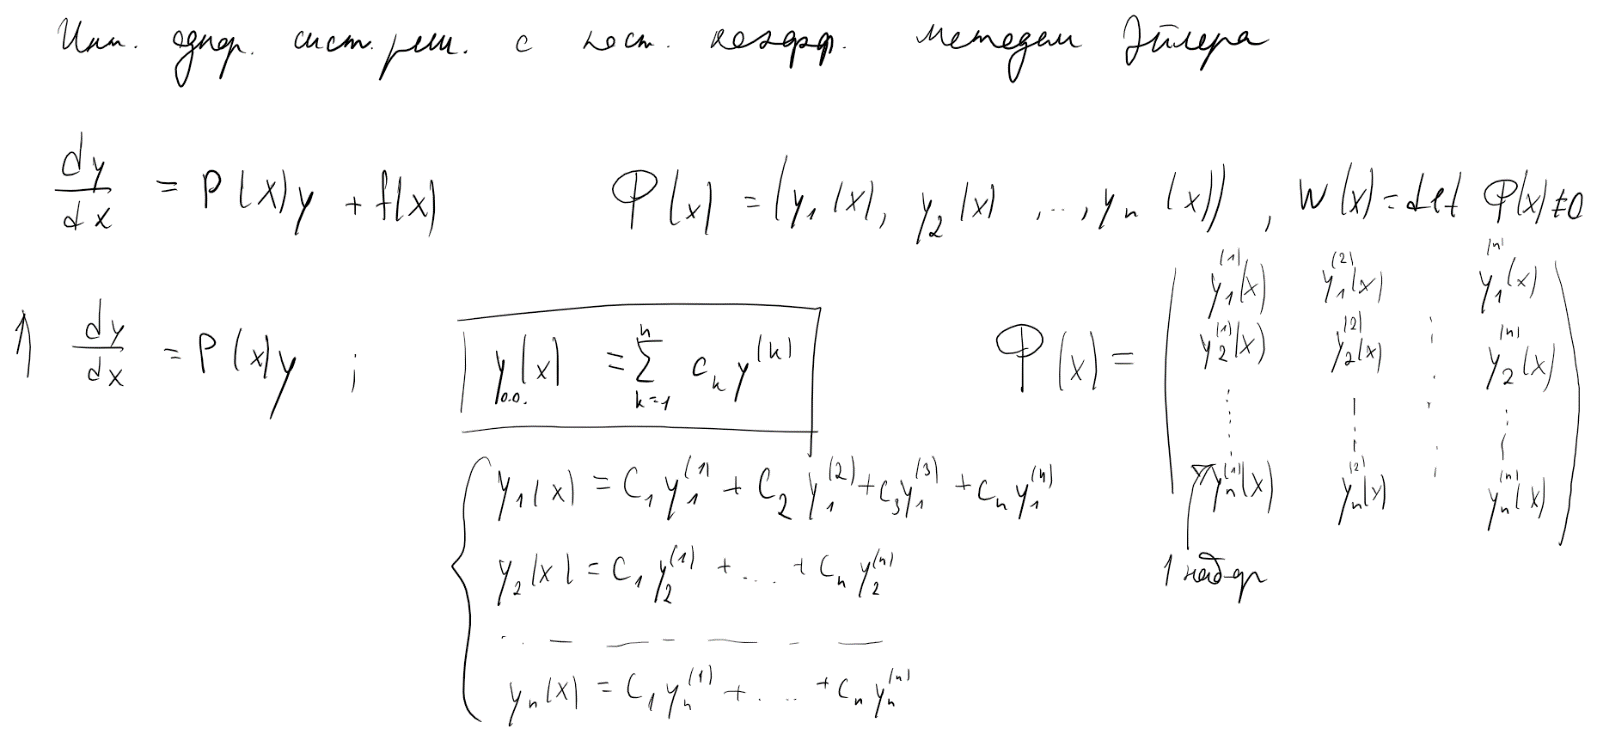 Инт. однор. сист. реш. с пост. коэфф. методом Эйлера
dy/dx = P(x)y + f(x)    Φ(x) = (y₁(x), y₂(x), ..., yₙ(x)), W(x) = det Φ(x) ≠ 0
1) dy/dx = P(x)y ;    y₀.₀.(x) = Σₖ₌₁ⁿ cₖ y⁽ᵏ⁾    Φ(x) =
y₁⁽¹⁾(x) y₁⁽²⁾(x) y₁⁽ⁿ⁾(x)
y₂⁽¹⁾(x) y₂⁽²⁾(x) : y₂⁽ⁿ⁾(x)
yₙ⁽¹⁾(x) yₙ⁽²⁾(x) : yₙ⁽ⁿ⁾(x)
y₁(x) = C₁y₁⁽¹⁾ + C₂y₁⁽²⁾ + c₃y₁⁽³⁾ + cₙy₁⁽ⁿ⁾
y₂(x) = C₁y₂⁽¹⁾ + ... + Cₙy₂⁽ⁿ⁾
yₙ(x) = C₁yₙ⁽¹⁾ + ... + Cₙyₙ⁽ⁿ⁾
1